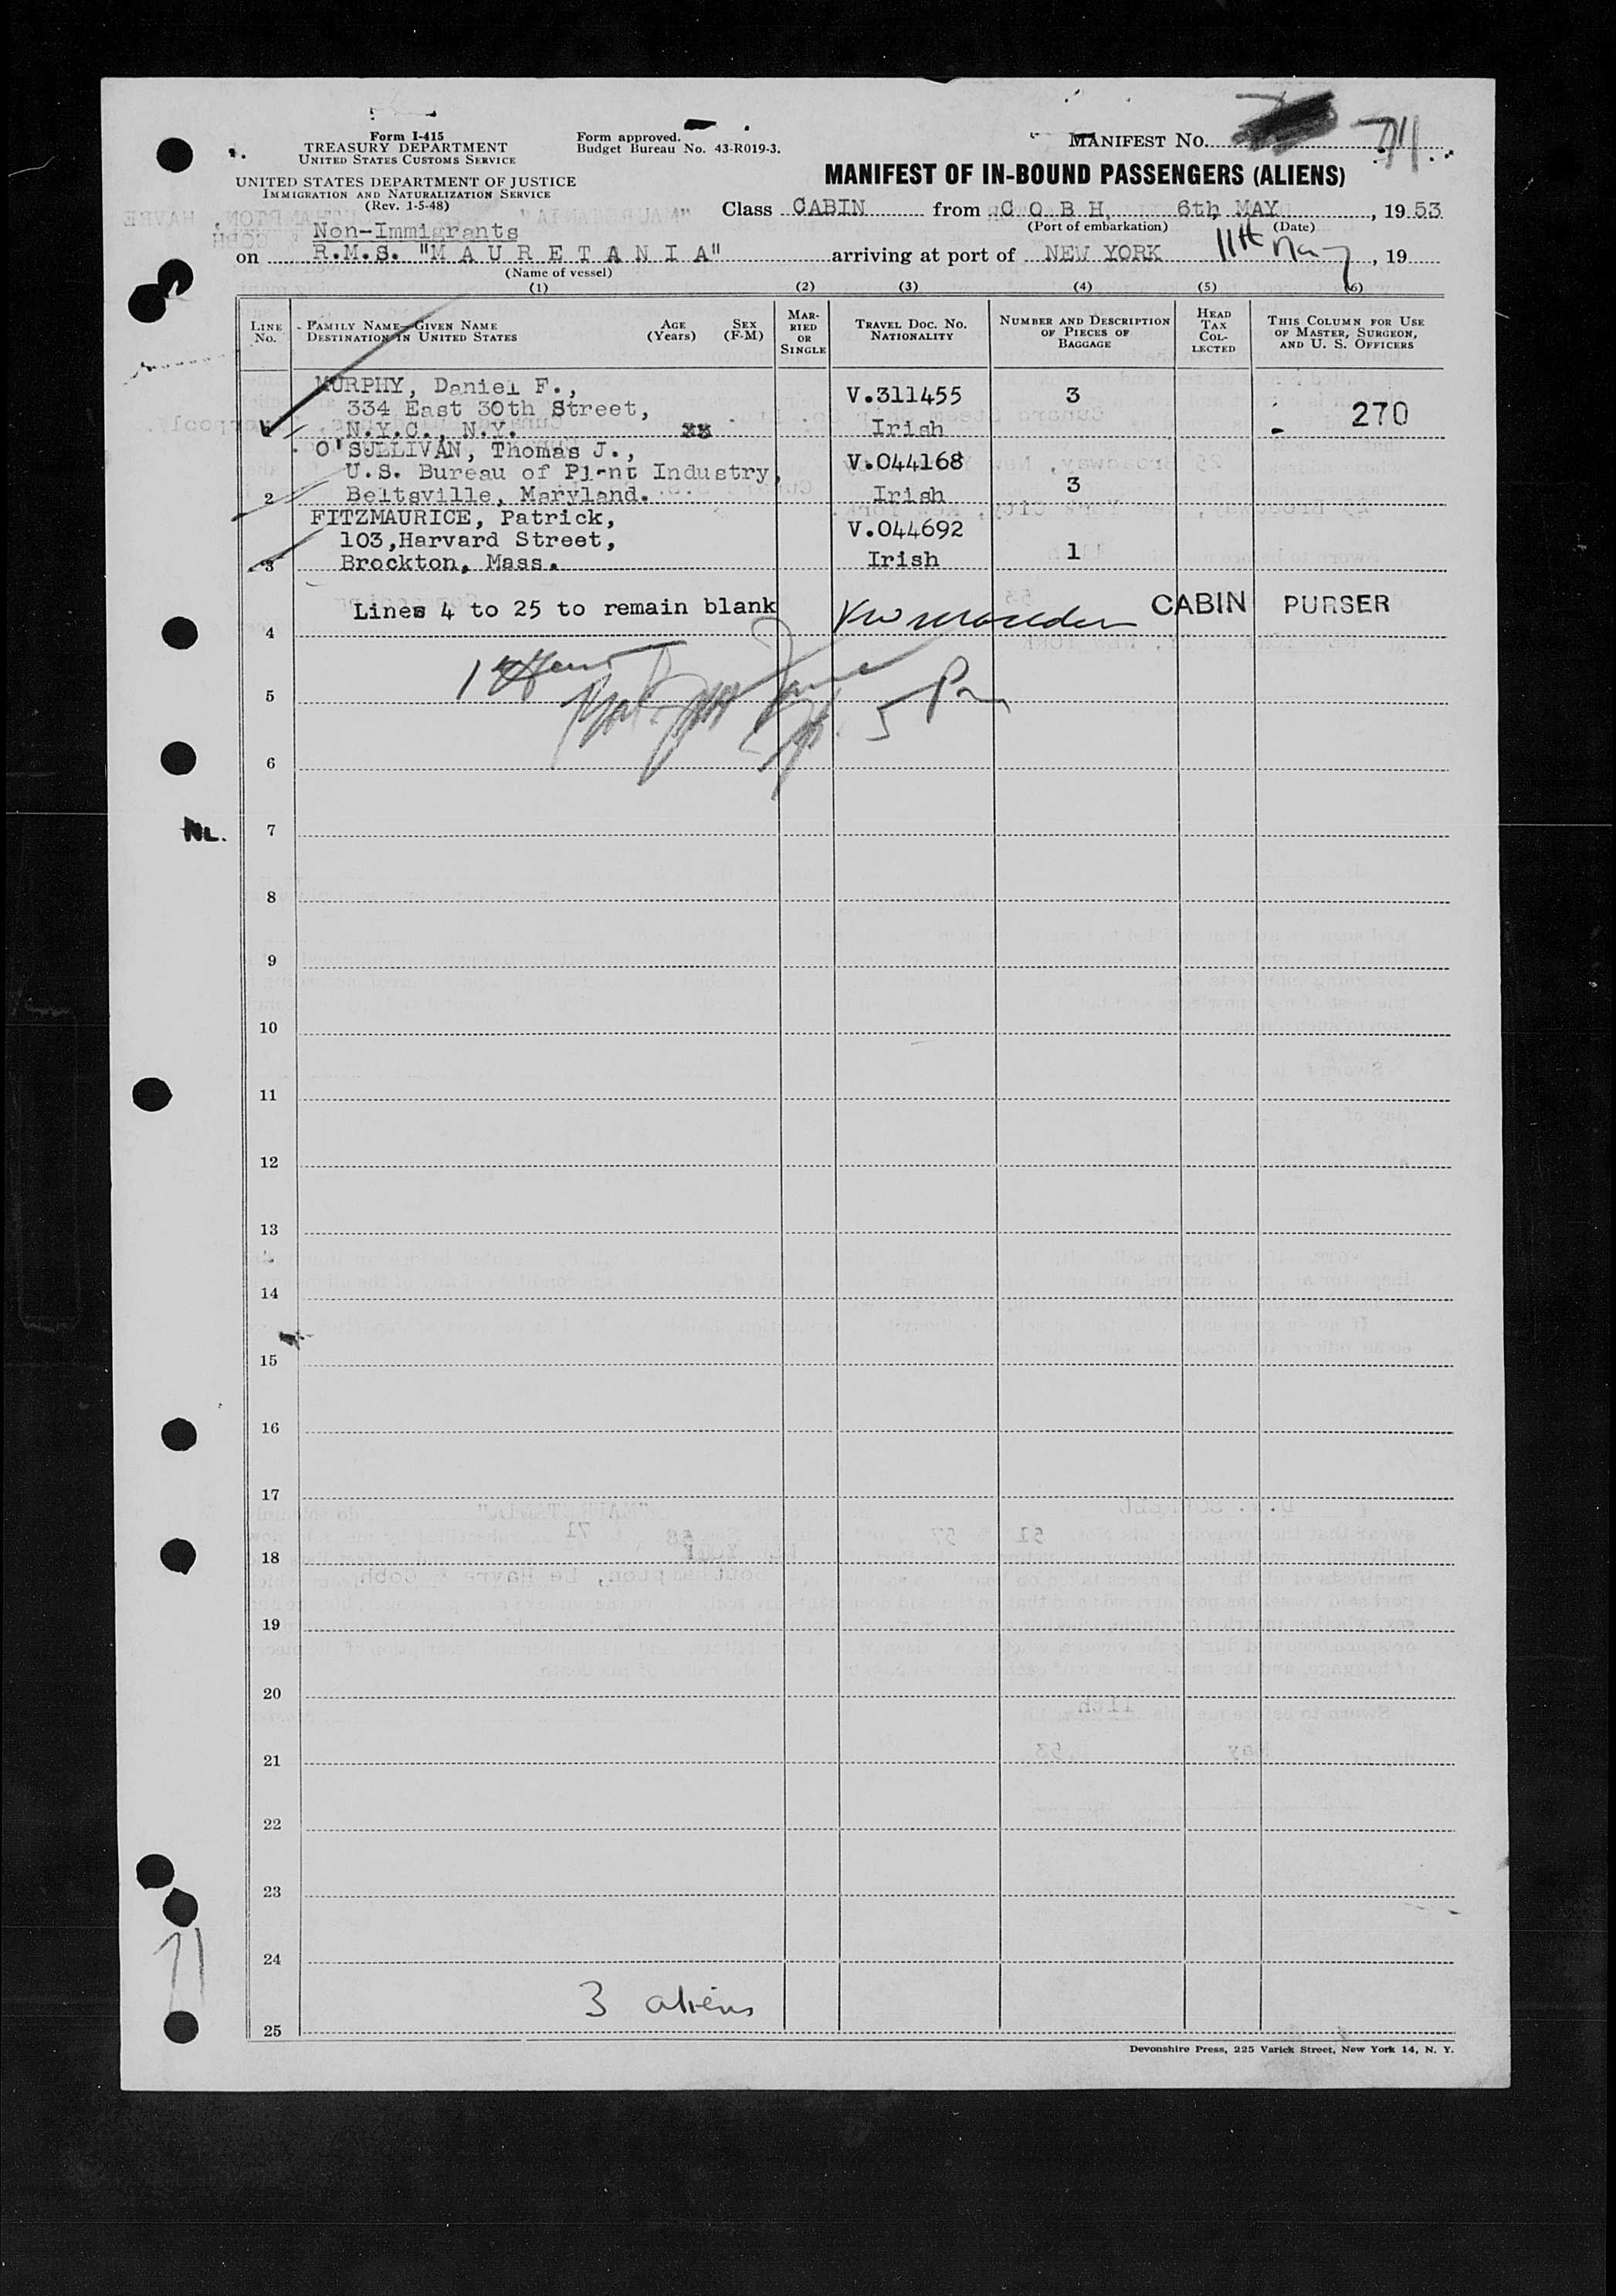 Form I-415
TREASURY DEPARTMENT
UNITED STATES CUSTOMS SERVICE
UNITED STATES DEPARTMENT OF JUSTICE
IMMIGRATION AND NATURALIZATION SERVICE
(Rev. 1-5-48)
Form approved.
Budget Bureau No. 43-R019-3.
MANIFEST NO. 71
MANIFEST OF IN-BOUND PASSENGERS (ALIENS)
Class CABIN from C O B H, 6th MAY, 1953
(Port of embarkation) (Date)
Non-Immigrants
on R.M.S. "M A U R E T A N I A" arriving at port of NEW YORK 11th May, 19
(Name of vessel)
(1) (2) (3) (4) (5) (6)
LINE No. FAMILY NAME—GIVEN NAME DESTINATION IN UNITED STATES AGE (Years) SEX (F-M) MARRIED OR SINGLE TRAVEL DOC. NO. NATIONALITY NUMBER AND DESCRIPTION OF PIECES OF BAGGAGE HEAD TAX COLLECTED THIS COLUMN FOR USE OF MASTER, SURGEON, AND U. S. OFFICERS
MURPHY, Daniel F., V.311455 3
334 East 30th Street, 270
N.Y.C., N.Y. xx Irish
O'SULLIVAN, Thomas J., V.044168
U.S. Bureau of Plant Industry, 3
2 Beltsville, Maryland. Irish
FITZMAURICE, Patrick, V.044692
103, Harvard Street, 1
3 Brockton, Mass. Irish
Lines 4 to 25 to remain blank CABIN PURSER
4
5
5 Pm
6
7
NL.
8
9
10
11
12
13
14
15
16
17
18
19
20
21
22
23
24
71
3 aliens
25
Devonshire Press, 225 Varick Street, New York 14, N. Y.